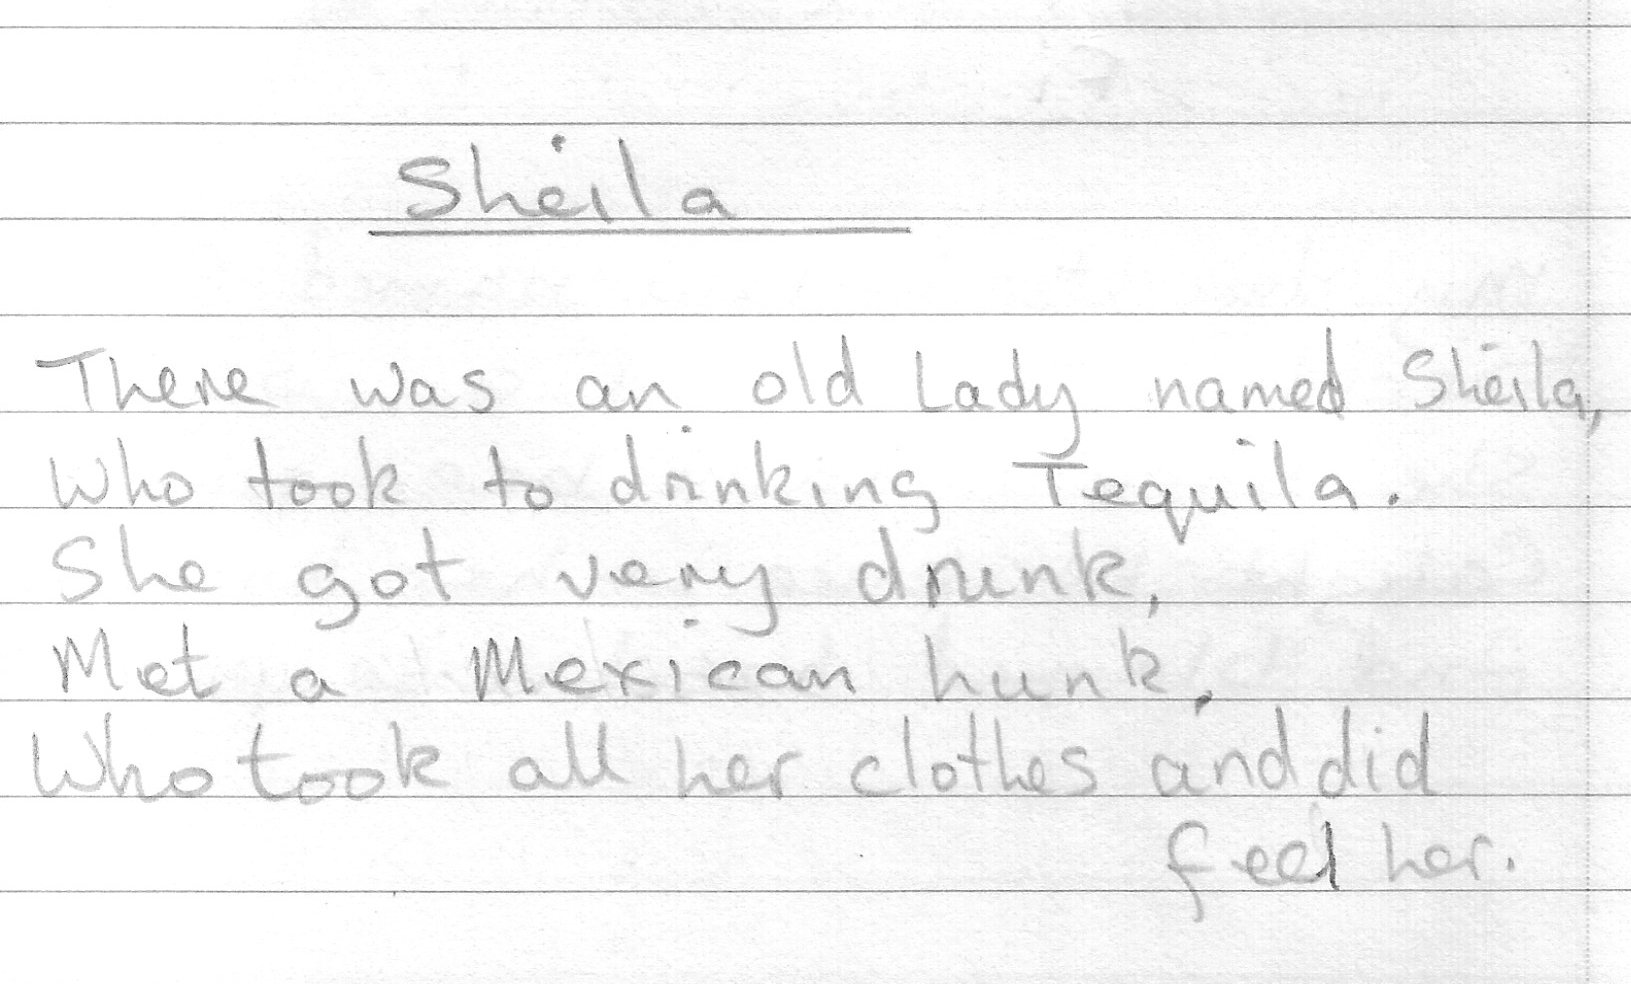 Sheila
There was an old Lady named Sheila,
Who took to drinking Tequila.
She got very drunk,
Met a Mexican hunk.
Who took all her clothes and did
feel her.